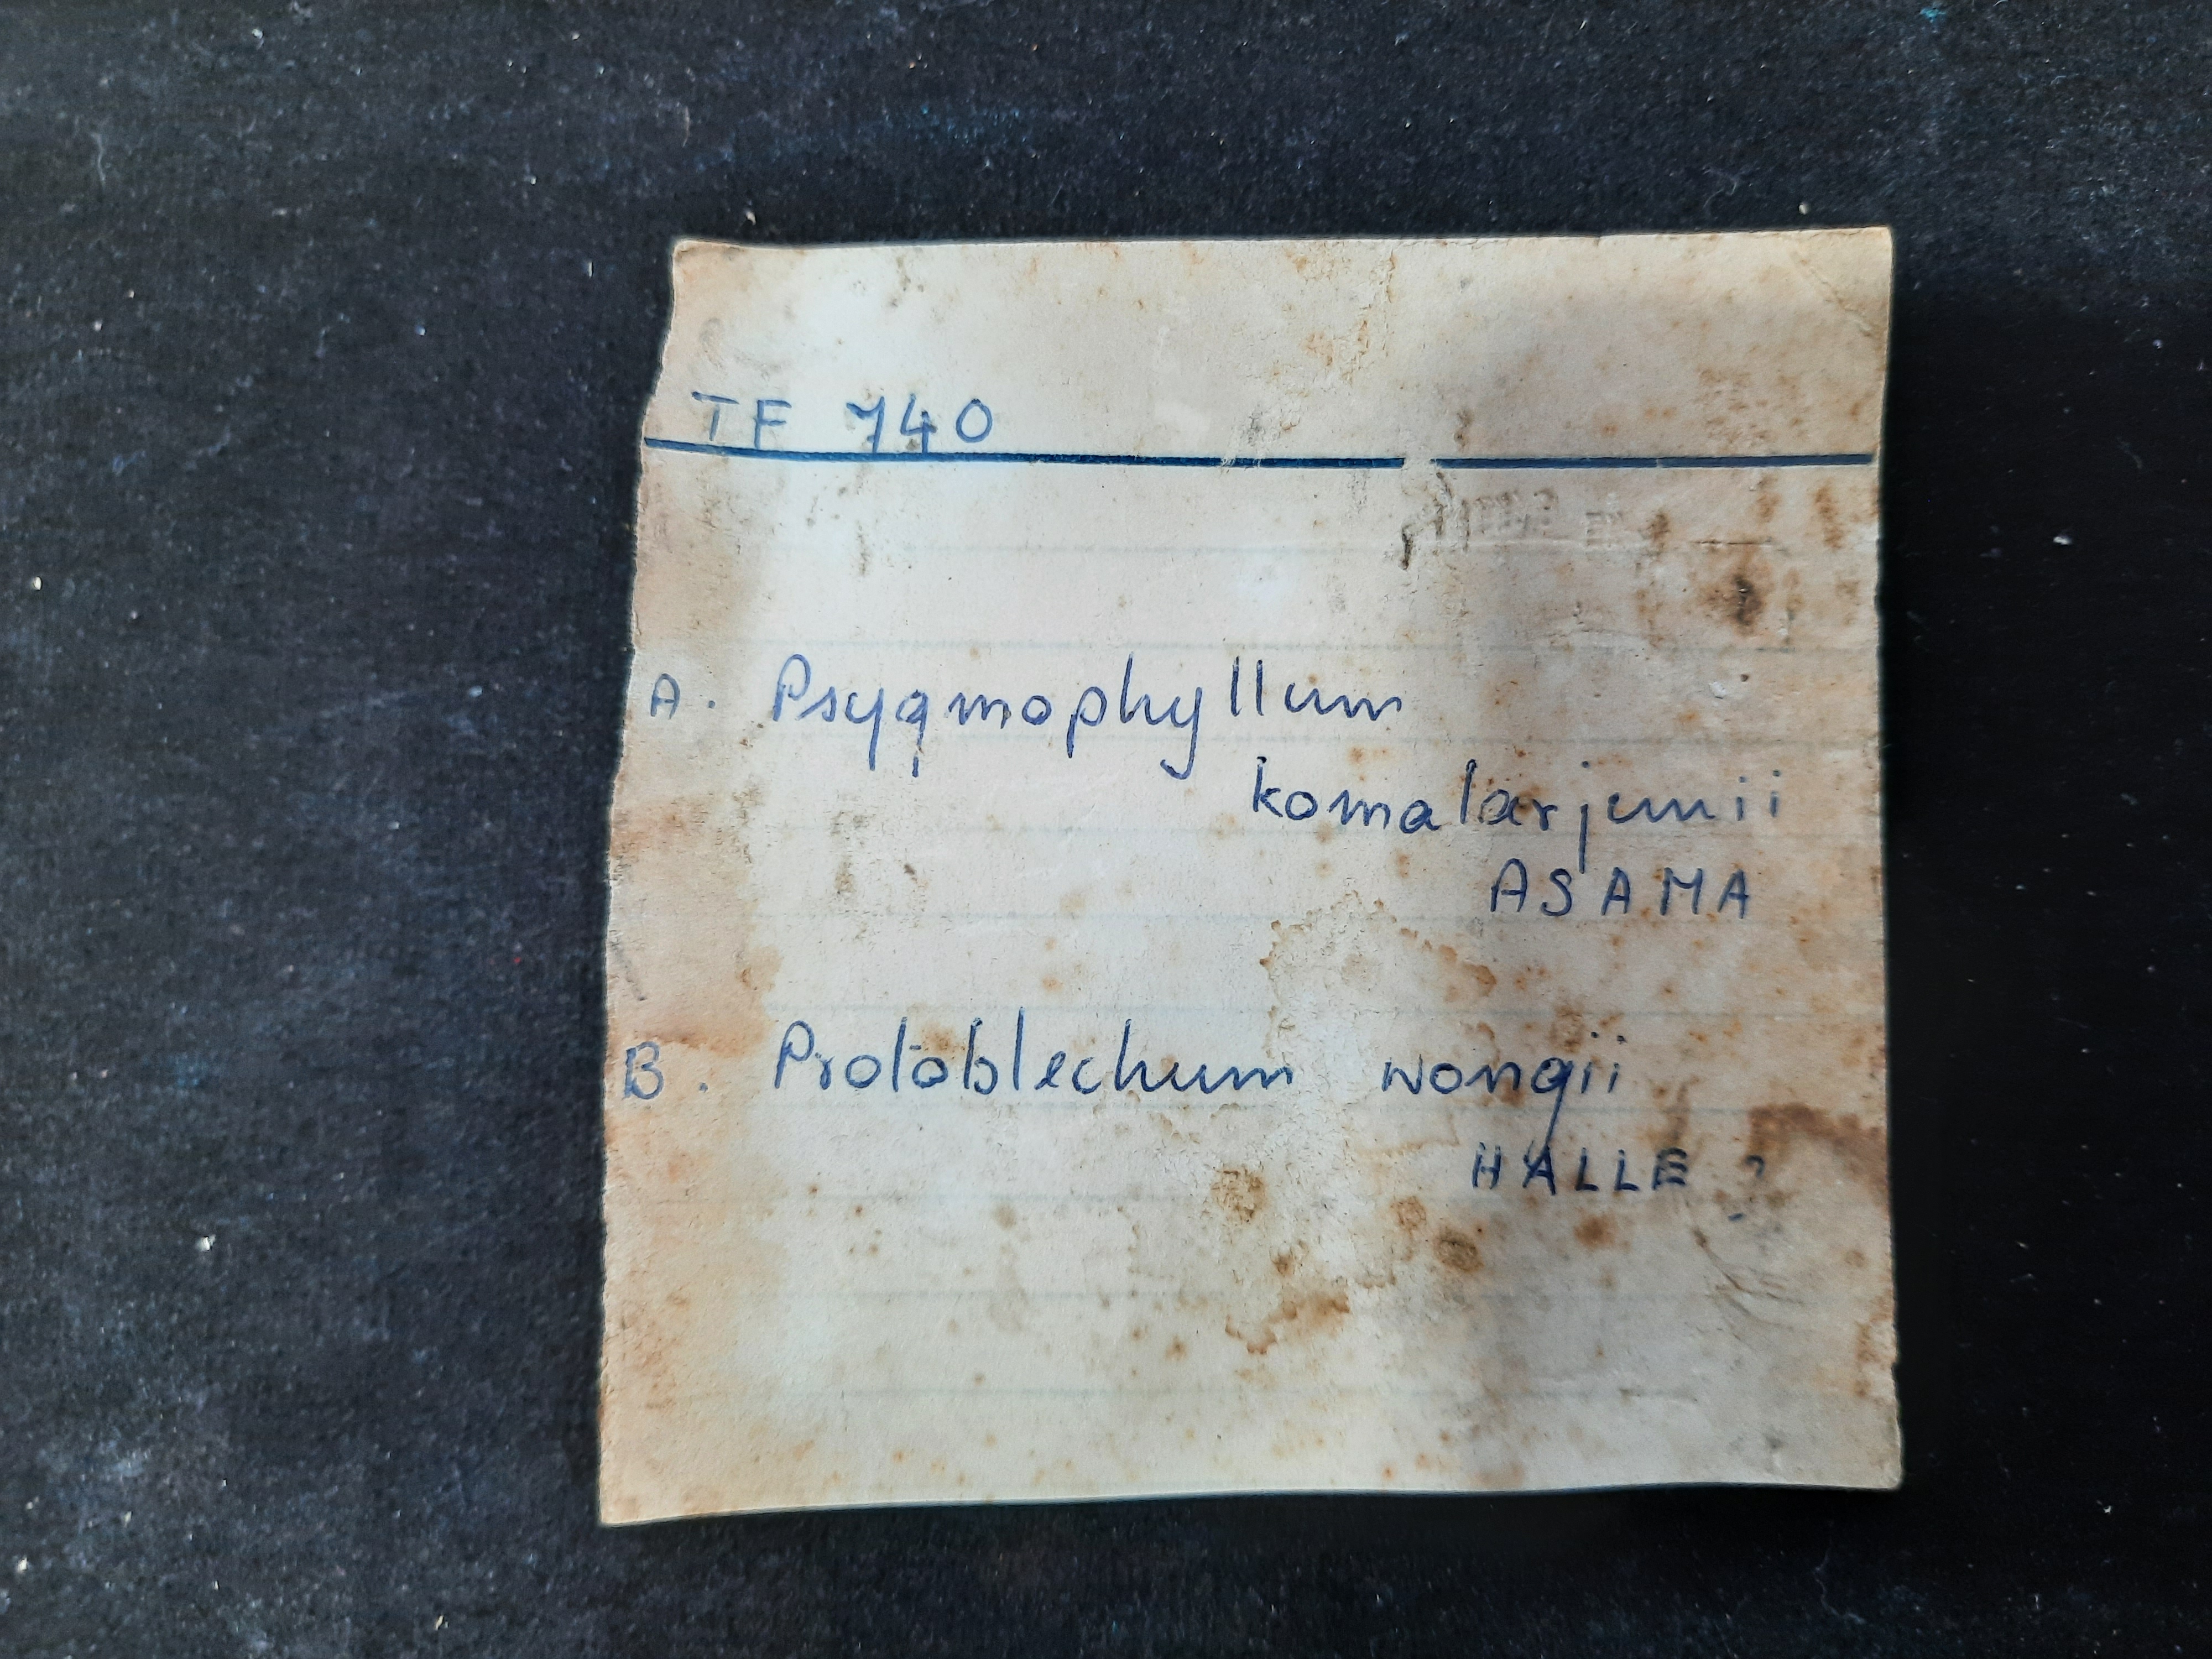 TF 740
A. Psygmophyllum
komalarjunii
ASAMA
B. Protoblechum wongii
HALLE ?